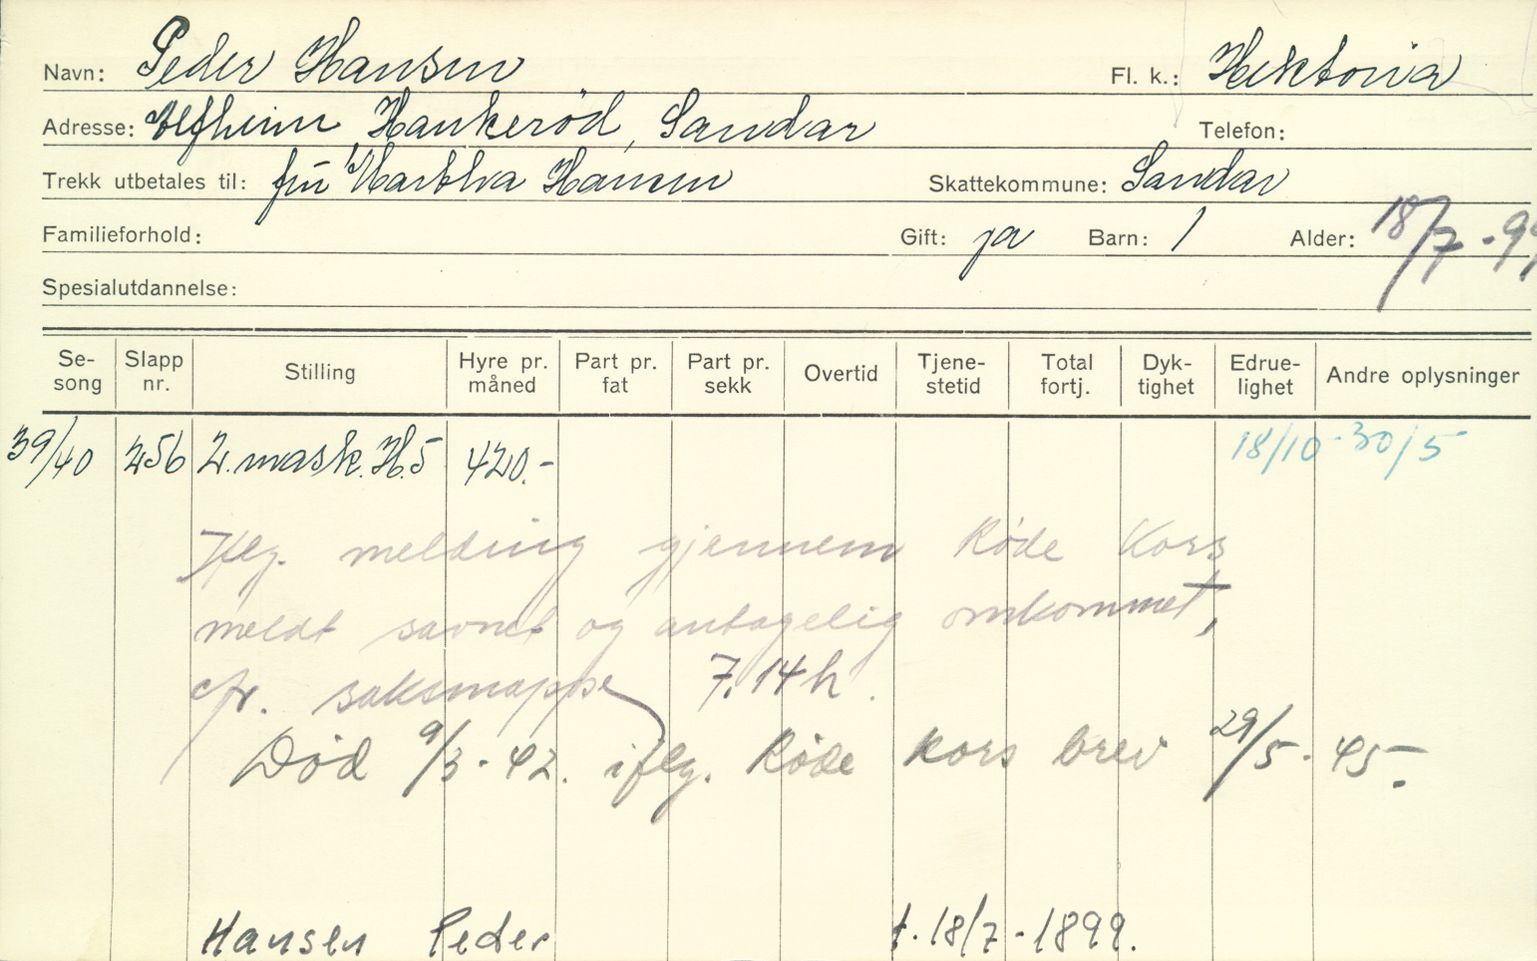 Navn: Peder Hansen Fl. k.: Hektoria
Adresse: Alfheim Haukerød, Sandar Telefon:
Trekk utbetales til: fru Marthha Hansen Skattekommune: Sandar
Familieforhold: Gift: ja Barn: 1 Alder: 18/7-99
Spesialutdannelse:
Se-song Slapp nr. Stilling Hyre pr. måned Part pr. fat Part pr. sekk Overtid Tjene-stetid Total fortj. Dyk-tighet Edrue-lighet Andre oplysninger
39/40 256 2. mask. H.5 420.- 18/10-30/5
Iflg. melding gjennem Røde Kors
meldt savnet og antagelig omkommet,
cfr. saksmappe 7.14h.
Død 9/3-42. iflg. Røde kors brev 29/5-45.
Hansen Peder f. 18/7-1899.